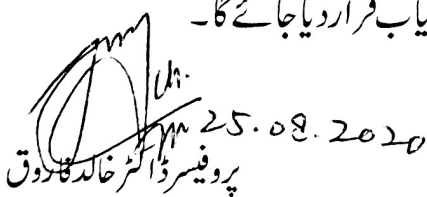 یاب قرار دیا جائے گا۔
25.08.2020
پروفیسر ڈاکٹر خالد فاروق